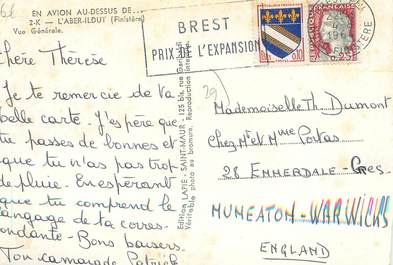 EN AVION AU-DESSUS DE...
2-K — L'ABER-ILDUT (Finistère)
Vue Générale.
BREST
PRIX DE L'EXPANSION
Chère Thérèse
Je te remercie de ta
belle carte. J'espère que
tu passes de bonnes et
que tu n'as pas trop
de pluie. En espérant
que tu comprend le
langage de ta corres-
pondante - Bons baisers.
Ton camarade Patrick
Edition LAPIE - SAINT-MAUR - 125 bis, rue Garibaldi
Véritable photo au bromure. Reproduction interdite.
0,10
196
FINISTERE
0,25
29
Mademoiselle Th. Dumont
Chez Mr et Mme Portas
28 EMMERDALE-Cres
MUNEATON-WARWICKS
ENGLAND